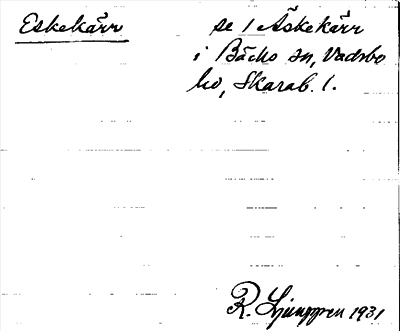 Eskekärr se 1 Äskekärr
i Bäcks sn, Vadsbo
hd, Skarab. l.
R. Ljunggren 1931